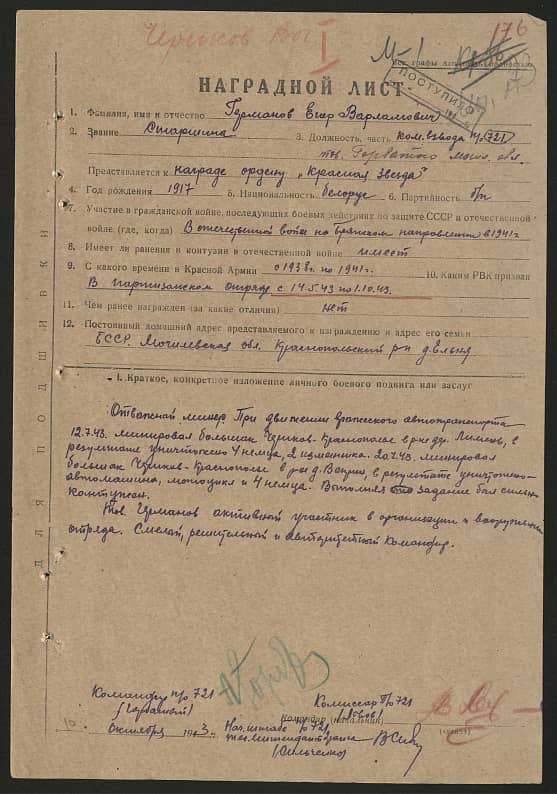 Чериков
I
176
М-1
ПОСТУПИЛО
НАГРАДНОЙ ЛИСТ
1. Фамилия, имя и отчество Гурманов Егор Варламович
2. Звание Старшина 3. Должность, часть ком. взвода п/о 721
Могил. обл.
Представляется к награде ордену „Красная Звезда"
4. Год рождения 1917 5. Национальность белорус 6. Партийность б/п
7. Участие в гражданской войне, последующих боевых действиях по защите СССР и отечественной
войне (где, когда) В отечественной войне на брянском направлении в 1941 г.
8. Имеет ли ранения и контузии в отечественной войне имеет
9. С какого времени в Красной Армии с 1938 г. по 1941 г. 10. Каким РВК призван
В партизанском отряде с 14.5.43 по 1.10.43.
11. Чем ранее награжден (за какие отличия) нет
12. Постоянный домашний адрес представляемого к награждению и адрес его семьи
БССР. Могилевская обл. Краснопольский р-н д. Ельня
I. Краткое, конкретное изложение личного боевого подвига или заслуг
Отважной минер. При движении вражеского автотранспорта
12.7.43. минировал большак Чериков-Краснополье в р-не дер. в
результате уничтожено 4 немца, 2 изменника. 20.7.43. минировал
большак Чериков-Краснополье в р-не д. в результате уничтожено
автомашина, мотоцикл и 4 немца. Выполняя задание был сильно
контужен.
Тов Гурманов активной участник в организации и вооружении
отряда. Смелой, решительной и авторитетный командир.
ДЛЯ ПОДШИВКИ
Командир п/о 721
Комиссар п/о 721
Командир (начальник)
Октября 1943 г. Нач. штаба п/о 721